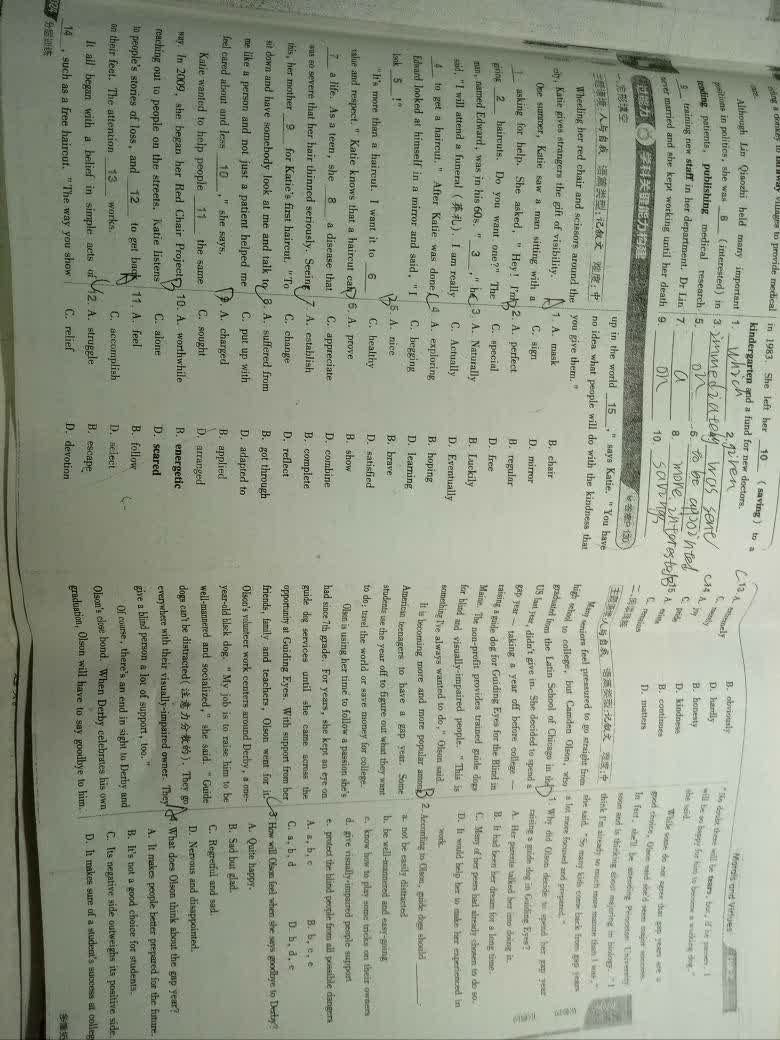 in 1983. She left her 10 (saving) to a
kindergarten and a fund for new doctors.
Although Lin Qiaozhi held many important
positions in politics, she was 6 (interested) in
patients, publishing medical research
training new staff in her department. Dr. Lin
never married and she kept working until her death
1. which 2. given
3. immediately was sent
5. on 6. to be appointed
7. a 8. more interested
9. on 10. savings
过能力 学科关键能力构建
一、完形填空
主题语境:人与自我 语篇类型:记叙文 难度:中
Wheeling her red chair and scissors around the
city, Katie gives strangers the gift of visibility.
One summer, Katie saw a man sitting with a
1 asking for help. She asked, "Hey! I'm
giving 2 haircuts. Do you want one?" The
man, named Edward, was in his 60s. " 3 ," he
said, "I will attend a funeral (葬礼). I am really
4 to get a haircut." After Katie was done,
Edward looked at himself in a mirror and said, "I
look 5 !"
"It's more than a haircut. I want it to 6
value and respect." Katie knows that a haircut can
7 a life. As a teen, she 8 a disease that
was so severe that her hair thinned seriously. Seeing
this, her mother 9 for Katie's first haircut. "To
sit down and have somebody look at me and talk to
me like a person and not just a patient helped me
feel cared about and less 10 ," she says.
Katie wanted to help people 11 the same
way. In 2009, she began her Red Chair Project,
reaching out to people on the streets. Katie listens
to people's stories of loss, and 12 to get back
on their feet. The attention 13 works.
It all began with a belief in simple acts of
14 , such as a free haircut. "The way you show
up in the world 15 ," says Katie. "You have
no idea what people will do with the kindness that
you give them."
1. A. mask B. chair
C. sign D. mirror
2. A. perfect B. regular
C. special D. free
3. A. Naturally B. Luckily
C. Actually D. Eventually
4. A. exploring B. hoping
C. begging D. learning
5. A. nice B. brave
C. healthy D. satisfied
6. A. prove B. show
C. appreciate D. combine
7. A. establish B. complete
C. change D. reflect
8. A. suffered from B. got through
C. put up with D. adapted to
9. A. charged B. applied
C. sought D. arranged
10. A. worthwhile B. energetic
C. alone D. scared
11. A. feel B. follow
C. accomplish D. select
12. A. struggle B. escape
C. relief D. devotion
B. obviously
D. hardly
B. honesty
D. kindness
B. continues
D. matters
主题语境:人与自我 语篇类型:记叙文 难度:中
Many seniors feel pressured to go straight from
high school to college, but Camden Olson, who
graduated from the Latin School of Chicago in the
US last year, didn't give in. She decided to spend a
gap year — taking a year off before college —
raising a guide dog for Guiding Eyes for the Blind in
Maine. The non-profit provides trained guide dogs
for blind and visually-impaired people. "This is
something I've always wanted to do," Olson said.
It is becoming more and more popular among
American teenagers to have a gap year. Some
students use the year off to figure out what they want
to do, travel the world or save money for college.
Olson is using her time to follow a passion she's
had since 7th grade. For years, she kept an eye on
guide dog services until she came across the
opportunity at Guiding Eyes. With support from her
friends, family and teachers, Olson went for it.
Olson's volunteer work centers around Derby, a one-
year-old black dog. "My job is to raise him to be
well-mannered and socialized," she said. "Guide
dogs can't be distracted(注意力分散的). They go
everywhere with their visually-impaired owner. They
give a blind person a lot of support, too."
Of course, there's an end in sight to Derby and
Olson's close bond. When Derby celebrates his own
graduation, Olson will have to say goodbye to him.
Morals and Virtues
"No doubt there will be tears, but, if he passes, I
will be so happy for him to become a working dog,"
she said.
While some do not agree that gap years are a
good choice, Olson said she'd seen major success.
In fact, she'll be attending Princeton University
soon and is thinking about majoring in biology. "I
think I'm already so much more mature than I was,"
she said. "So many kids come back from gap years
a lot more focused and prepared."
1. Why did Olson decide to spend her gap year
raising a guide dog in Guiding Eyes?
A. Her parents talked her into doing it.
B. It had been her dream for a long time.
C. Many of her peers had already chosen to do so.
D. It would help her to make her experienced in
work.
2. According to Olson, guide dogs should ______.
a. not be easily distracted
b. be well-mannered and easy-going
c. know how to play some tricks on their owners
d. give visually-impaired people support
e. protect the blind people from all possible dangers
A. a, b, c B. b, c, e
C. a, b, d D. b, d, e
3. How will Olson feel when she says goodbye to Derby?
A. Quite happy.
B. Sad but glad.
C. Regretful and sad.
D. Nervous and disappointed.
4. What does Olson think about the gap year?
A. It makes people better prepared for the future.
B. It's not a good choice for students.
C. Its negative side outweighs its positive side.
D. It makes sure of a student's success at college
分层训练